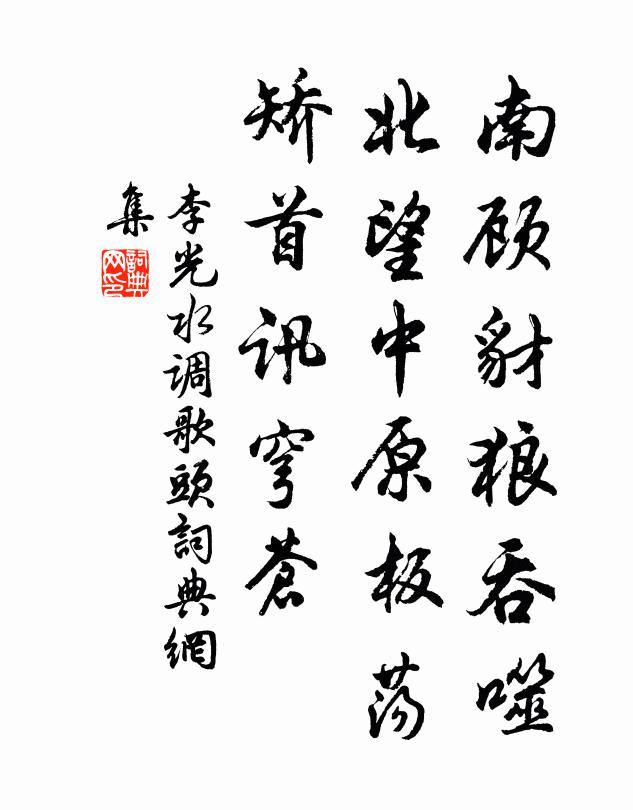 南顾豺狼吞噬
北望中原板荡
矫首讯穹苍
李光水调歌头詞典網
集
詞典网印